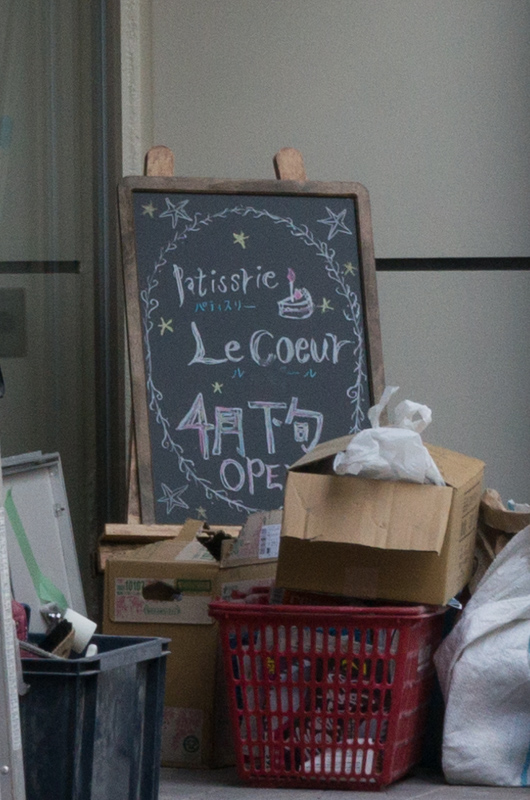 Patissrie
パティスリー
Le Coeur
ル クール
4月下旬
OPE